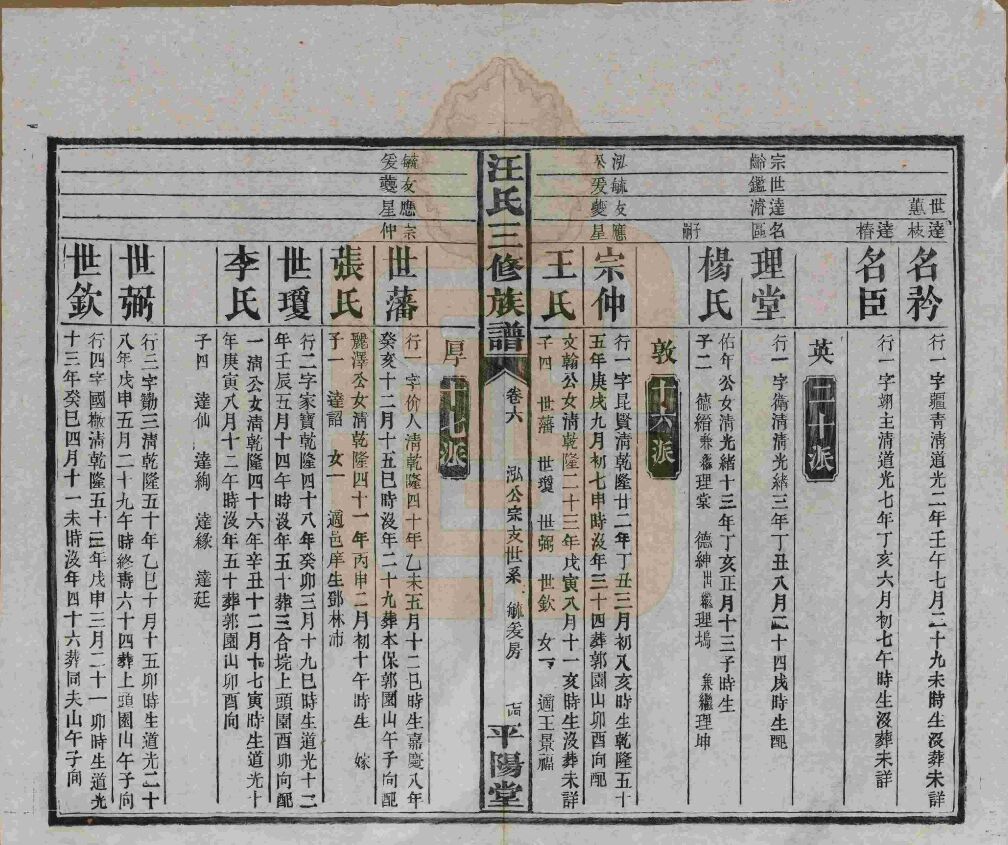 世達
蕙枝
名矜
行一字疆青清道光二年壬午七月二十九未時生沒葬未詳
達
椿
名臣
行一字翊主清道光七年丁亥六月初七午時生沒葬未詳
英二十派
宗世達名
齡鑑濬區
理堂
行一字衛清清光緒三年丁丑八月二十四戌時生配
子嗣
楊氏
佑年公女清光緒十三年丁亥正月十三子時生
子二 德縉兼繼理棠 德紳出繼理塢 兼繼理坤
敦十六派
泓毓友應
公爰夔星
宗仲
行一字昆賢清乾隆廿二年丁丑三月初八亥時生乾隆五十
五年庚戌九月初七申時沒年三十四葬郭園山卯酉向配
王氏
文翰公女清乾隆二十三年戊寅八月十一亥時生沒葬未詳
子四 世藩 世瓊 世弼 世欽 女一 適王景福
汪氏三修族譜
卷六
泓公宗支世系
毓爰房
平陽堂
厚十七派
毓友應宗
爰夔星仲
世藩
行一字价人清乾隆四十年乙未五月十二巳時生嘉慶八年
癸亥十二月十五巳時沒年二十九葬本保郭園山午子向配
張氏
麗澤公女清乾隆四十一年丙申二月初十午時生 嫁
子一 達詔 女一 適邑庠生鄧林沛
世瓊
行二字家寶乾隆四十八年癸卯三月十九巳時生道光十二
年壬辰五月十四午時沒年五十葬三合垸上頭園酉卯向配
李氏
一清公女清乾隆四十六年辛丑十二月十七寅時生道光十
年庚寅八月十二午時沒年五十葬郭園山卯酉向
子四 達仙 達絢 達緣 達廷
世弼
行三字勷三清乾隆五十年乙巳十月十五卯時生道光二十
八年戊申五月二十九午時終壽六十四葬上頭園山午子向
世欽
行四字國檄清乾隆五十三年戊申三月二十一卯時生道光
十三年癸巳四月十一未時沒年四十六葬同夫山午子向